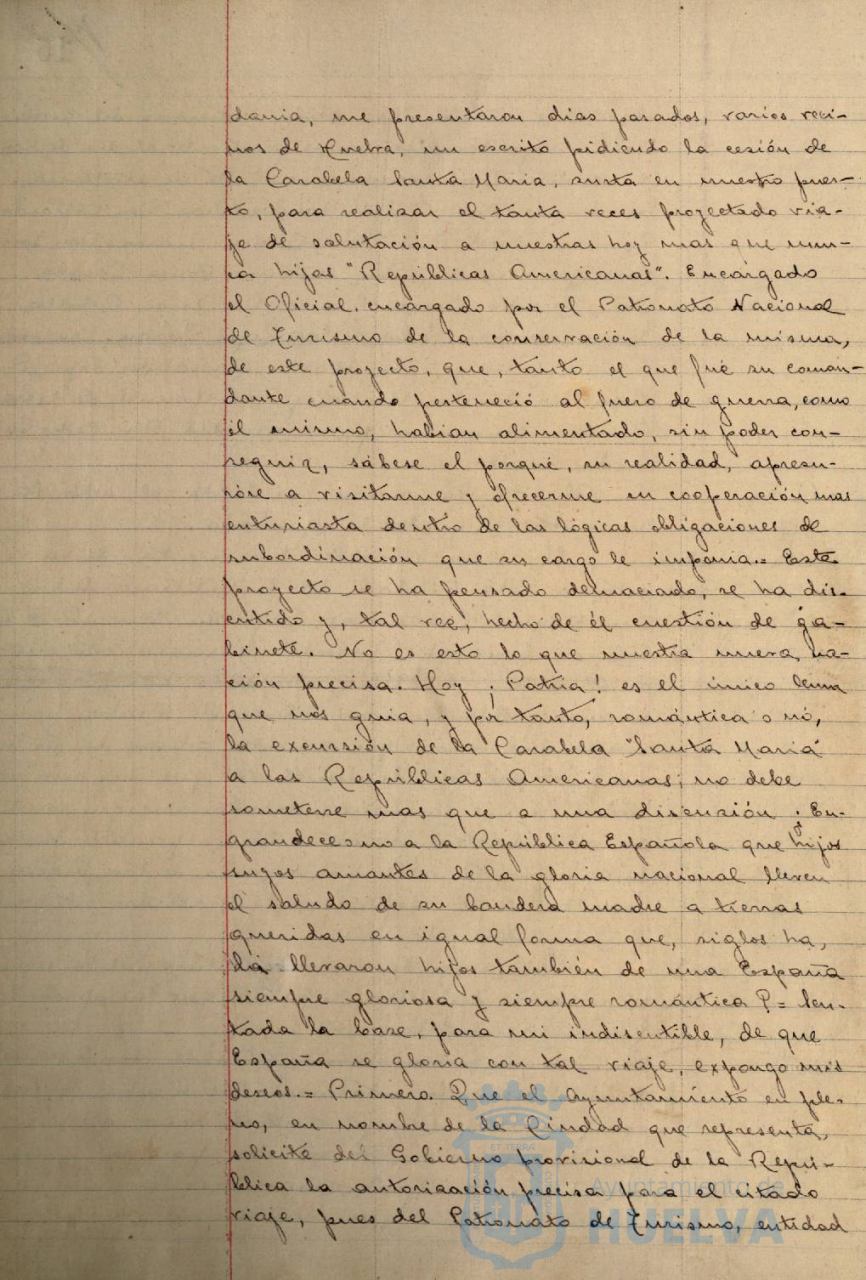 dania, me presentaron dias pasados, varios veci-
nos de Huelva, un escrito pidiendo la cesión de
la Carabela Santa Maria, surta en nuestro puer-
to, para realizar el tanta veces proyectado via-
je de salutación a nuestras hoy mas que nun-
ca hijas "Repúblicas Americanas". Encargado
el Oficial, encargado por el Patronato Nacional
de Turismo de la conservación de la misma,
de este proyecto, que, tanto el que fué su coman-
dante cuando perteneció al fuero de guerra, como
él mismo, habian alimentado, sin poder con-
seguir, sábese el porqué, su realidad, apresu-
róse a visitarme y ofrecerme su cooperación mas
enturiasta dentro de las lógicas obligaciones de
subordinación que su cargo le imponia.= Este
proyecto se ha pensado demaciado, se ha dis-
cutido y, tal vez, hecho de él cuestión de ga-
binete. No es esto lo que nuestra nueva na-
ción precisa. Hoy ¡Patria! es el único lema
que nos guia, y por tanto, romántica o nó,
la excursión de la Carabela "Santa Maria"
a las Repúblicas Americanas, no debe
someterse mas que a una discusión. En-
grandece o no a la República Española que hijos
suyos amantes de la gloria nacional lleven
el saludo de su bandera madre a tierras
queridas en igual forma que, siglos ha,
la llevaron hijos también de una España
siempre gloriosa y siempre romántica?= Sen-
tada la base, para mi indiscutible, de que
España se gloria con tal viaje, expongo mis
deseos.= Primero. Que el Ayuntamiento en ple-
no, en nombre de la Ciudad que representa,
solicite del Gobierno provisional de la Repú-
blica la autorización precisa para el citado
viaje, pues del Patronato de Turismo, entidad
Ayuntamiento de
HUELVA